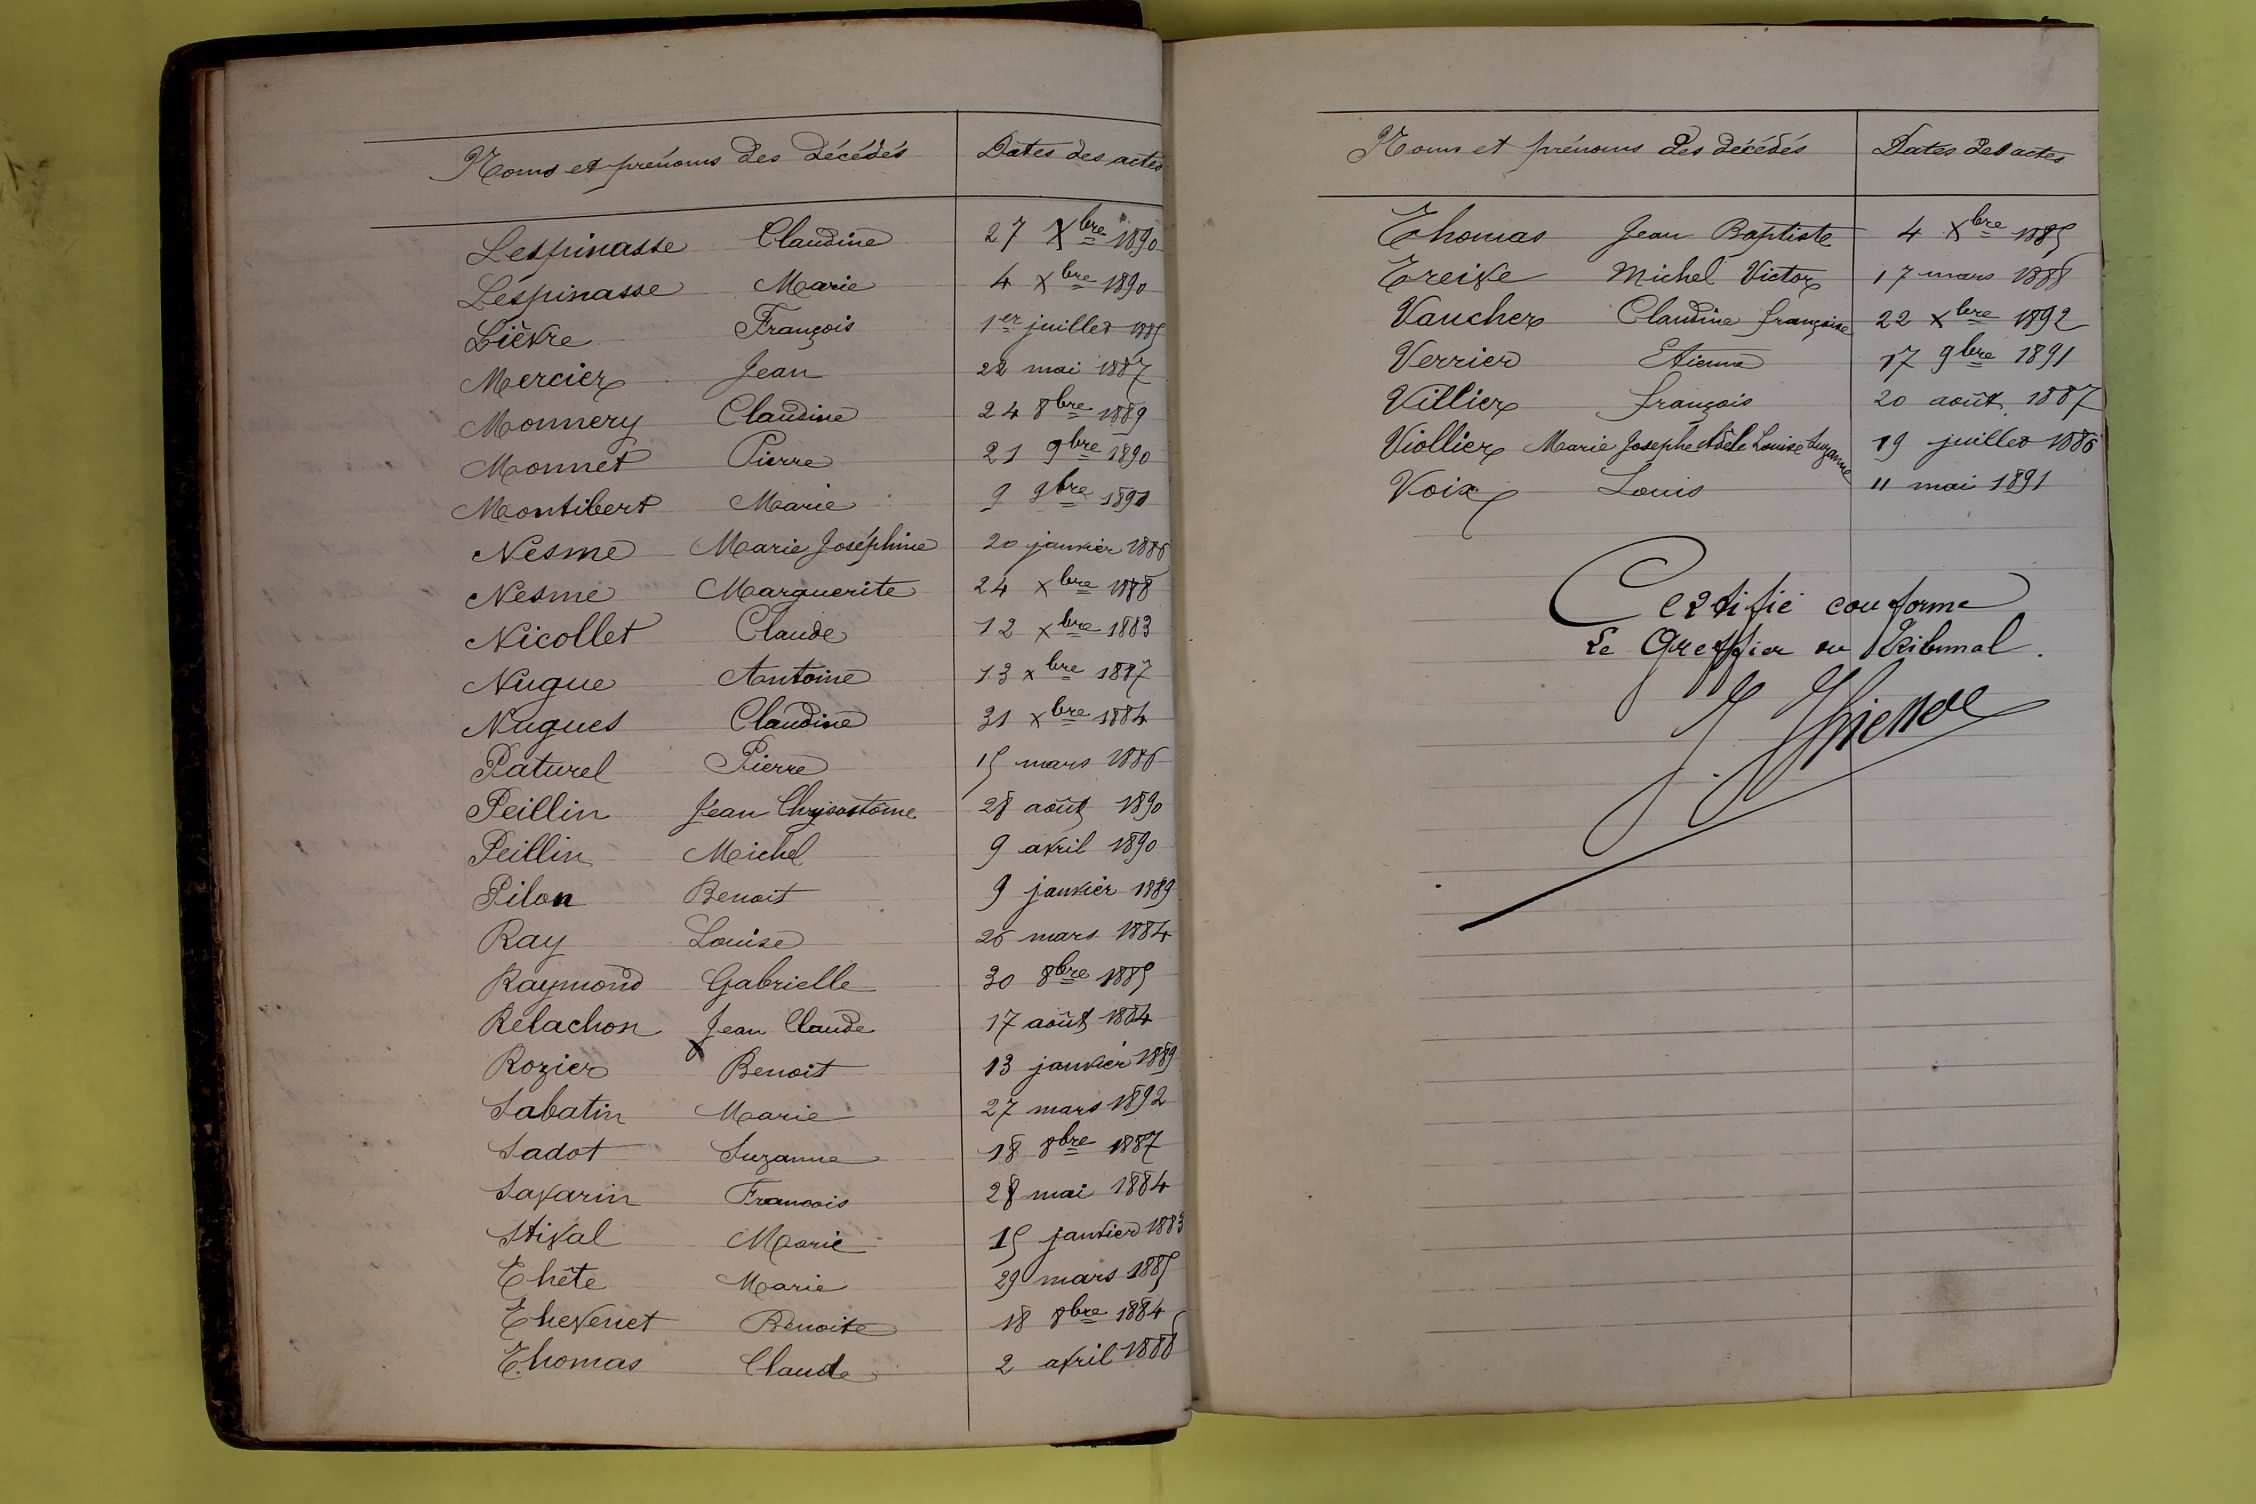 Noms et prénoms des décédés Dates des actes
Lespinasse Claudine 27 Xbre 1890
Lespinasse Marie 4 Xbre 1890
Lièvre François 1er juillet 1885
Mercier Jean 22 mai 1887
Monnery Claudine 24 8bre 1889
Monnet Pierre 21 9bre 1890
Montibert Marie 9 9bre 1890
Nesme Marie Joséphine 20 janvier 1886
Nesme Marguerite 24 xbre 1888
Nicollet Claude 12 xbre 1883
Nugue Antoine 13 xbre 1887
Nugues Claudine 31 xbre 1884
Paturel Pierre 15 mars 1886
Peillin Jean Chrysostôme 28 août 1890
Peillin Michel 9 avril 1890
Pilon Benoit 9 janvier 1889
Ray Louise 26 mars 1884
Raymond Gabrielle 30 8bre 1885
Rélachon Jean Claude 17 août 1884
Rozier Benoit 13 janvier 1889
Sabatin Marie 27 mars 1892
Sadot Suzanne 18 8bre 1887
Savarin Francois 28 mai 1884
Stival Marie 15 janvier 1883
Thête Marie 29 mars 1885
Thevenet Benoite 18 8bre 1884
Thomas Claude 2 avril 1888
Noms et prénoms des décédés Dates des actes
Thomas Jean Baptiste 4 xbre 1885
Treive Michel Victor 17 mars 1888
Vaucher Claudine françoise 22 xbre 1892
Verrier Etienne 17 9bre 1891
Villier françois 20 août 1887
Viollier Marie Josephe Adèle Louise Suzanne 19 juillet 1886
Voix Louis 11 mai 1891
Certifié conforme
Le Greffier du Tribunal.